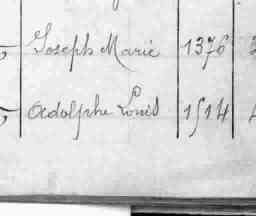 Joseph Marie 1376
Adolphe Louis 1514